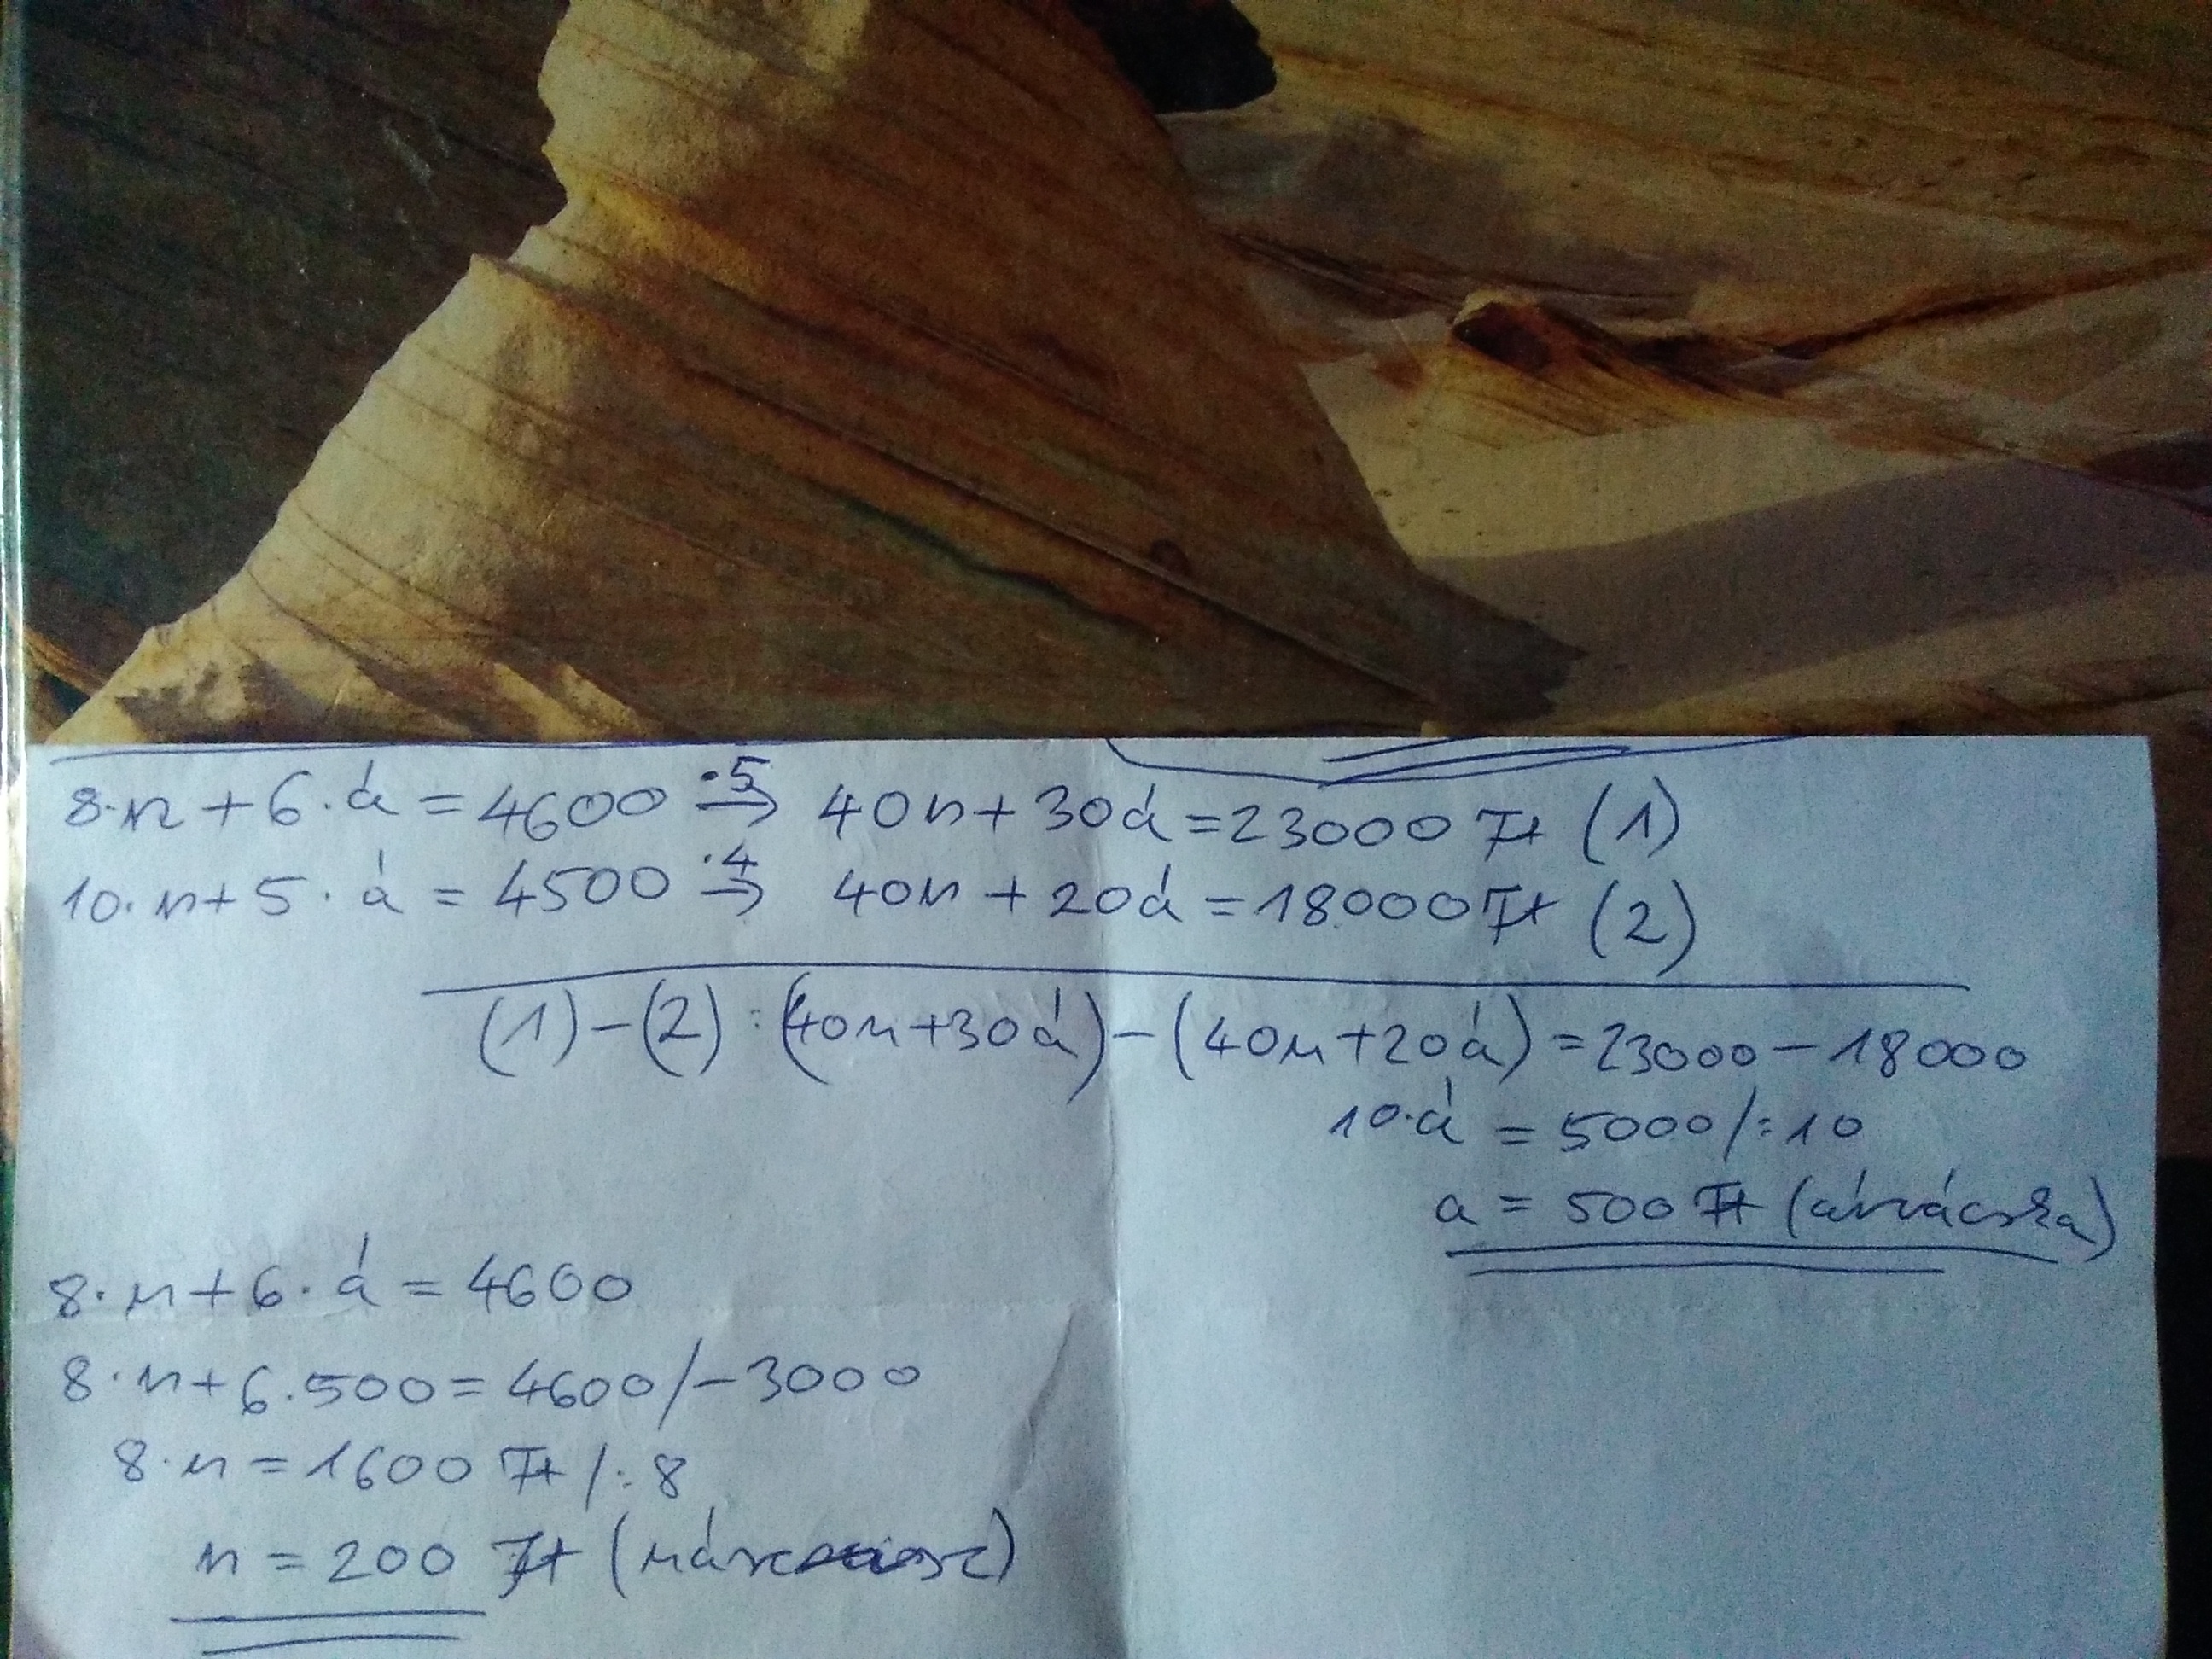 8·n+6·á=4600 ·5→ 40n+30á=23000 Ft (1)
10·n+5·á=4500 ·4→ 40n+20á=18000 Ft (2)
(1)-(2): (40n+30á)-(40n+20á)=23000-18000
10·á=5000/:10
a=500 Ft (árvácska)
8·n+6·á=4600
8·n+6·500=4600/-3000
8·n=1600 Ft/:8
n=200 Ft